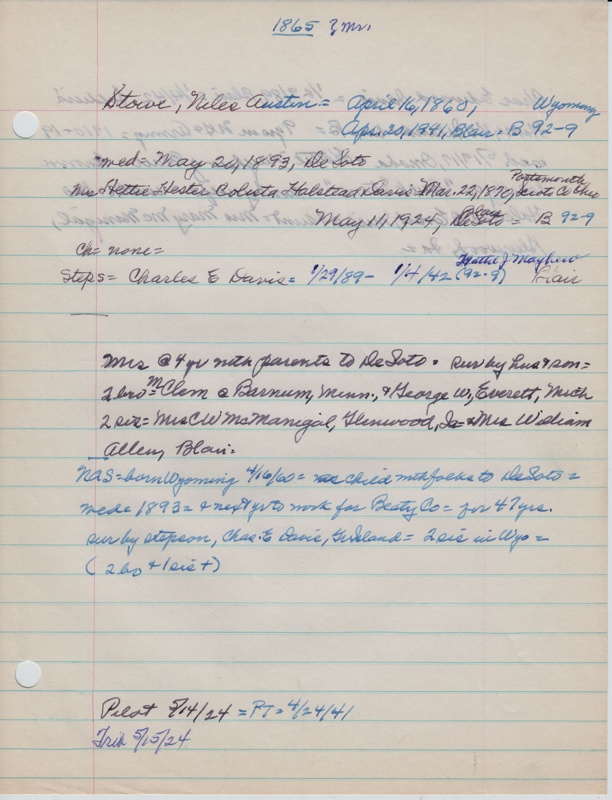 1865 & Mrs.
Stowe, Niles Austin = April 16, 1860, Wyoming
Apr. 20, 1941, Blair = B 92-9
med = May 20, 1893, DeSoto
Portsmouth
Mrs Hettie Hester Colista Halstead Davis = Mar. 22, 1870, Scioto Co Ohio
Blair
May 11, 1924, DeSoto = B 92-9
Ch = none =
Hattie J Mayhew
Steps = Charles E Davis = 1/29/89 - 1/4/42 (92-9) Blair
Mrs @ 4 yr with parents to DeSoto = sur by hus & son =
2 bro = McClem @ Barnum, Minn., & George W, Everett,
2 sis = Mrs C W McManigal, Glenwood, Ia = & Mrs William
Allen, Blair =
NAS = born Wyoming 4/16/60 = as child with folks to DeSoto =
med = 1893 = & next yr to work for Beaty Co = for 47 yrs.
sur by stepson, Chas. E Davis, = 2 sis in Wyo =
(2 bro & 1 sis +)
Pilot 5/14/24 = PT = 4/24/41
Trib 5/15/24